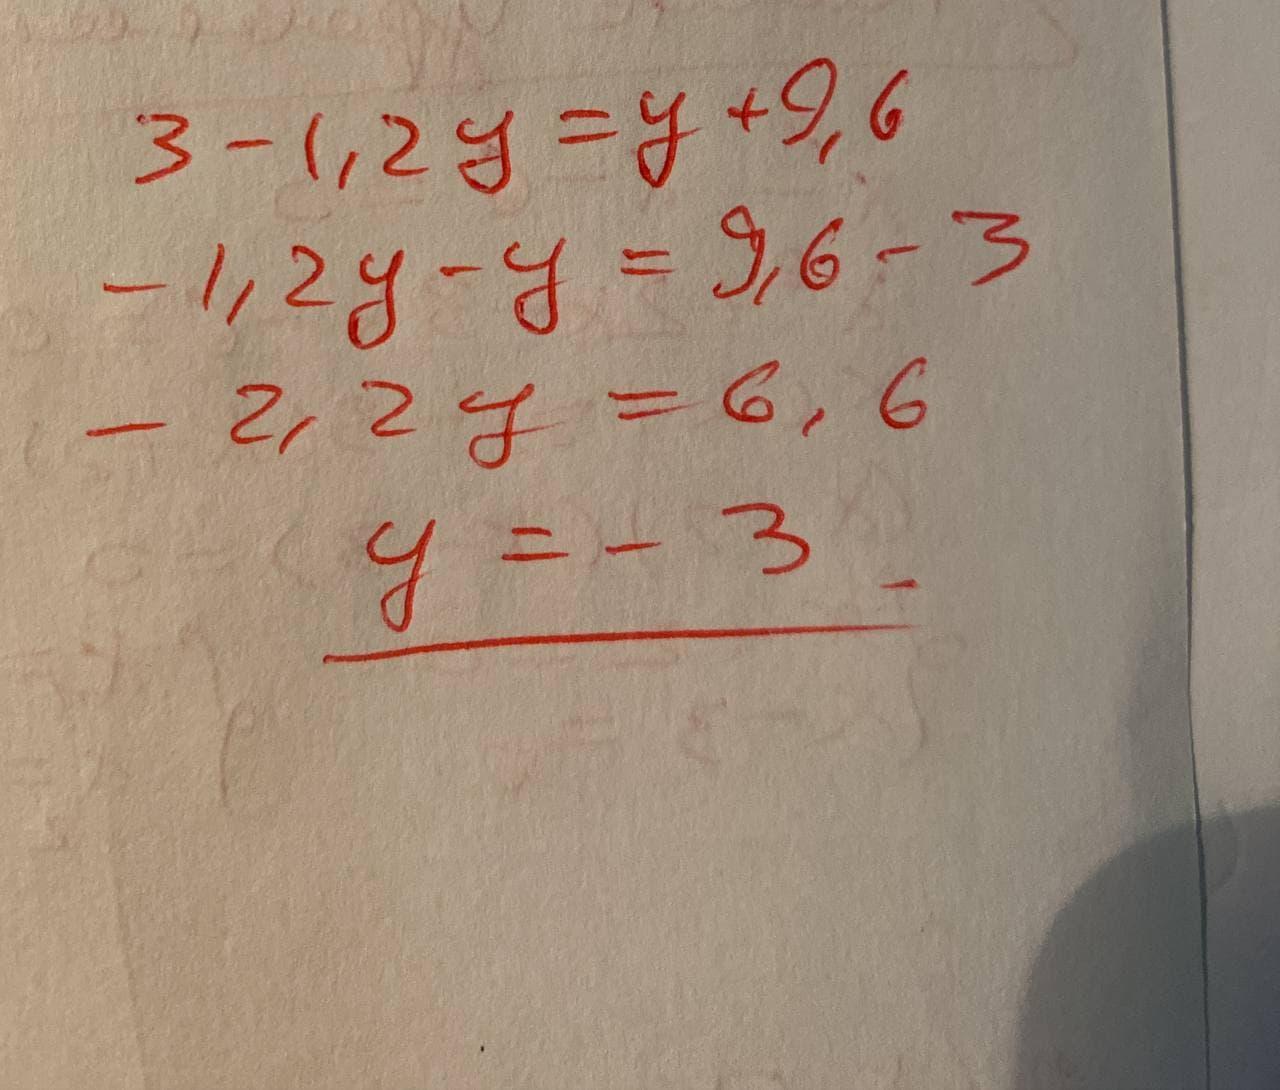 3 - 1,2y = y + 9,6
- 1,2y - y = 9,6 - 3
- 2,2y = 6,6
y = - 3